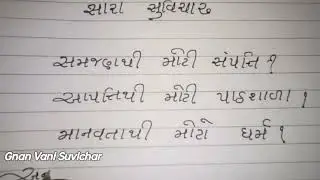 સારા સુવિચાર
સમજદારી મોટી સંપત્તિ ?
આપત્તિથી મોટી પાઠશાળા ?
માનવતાથી મોટો ધર્મ ?
Gnan Vani Suvichar